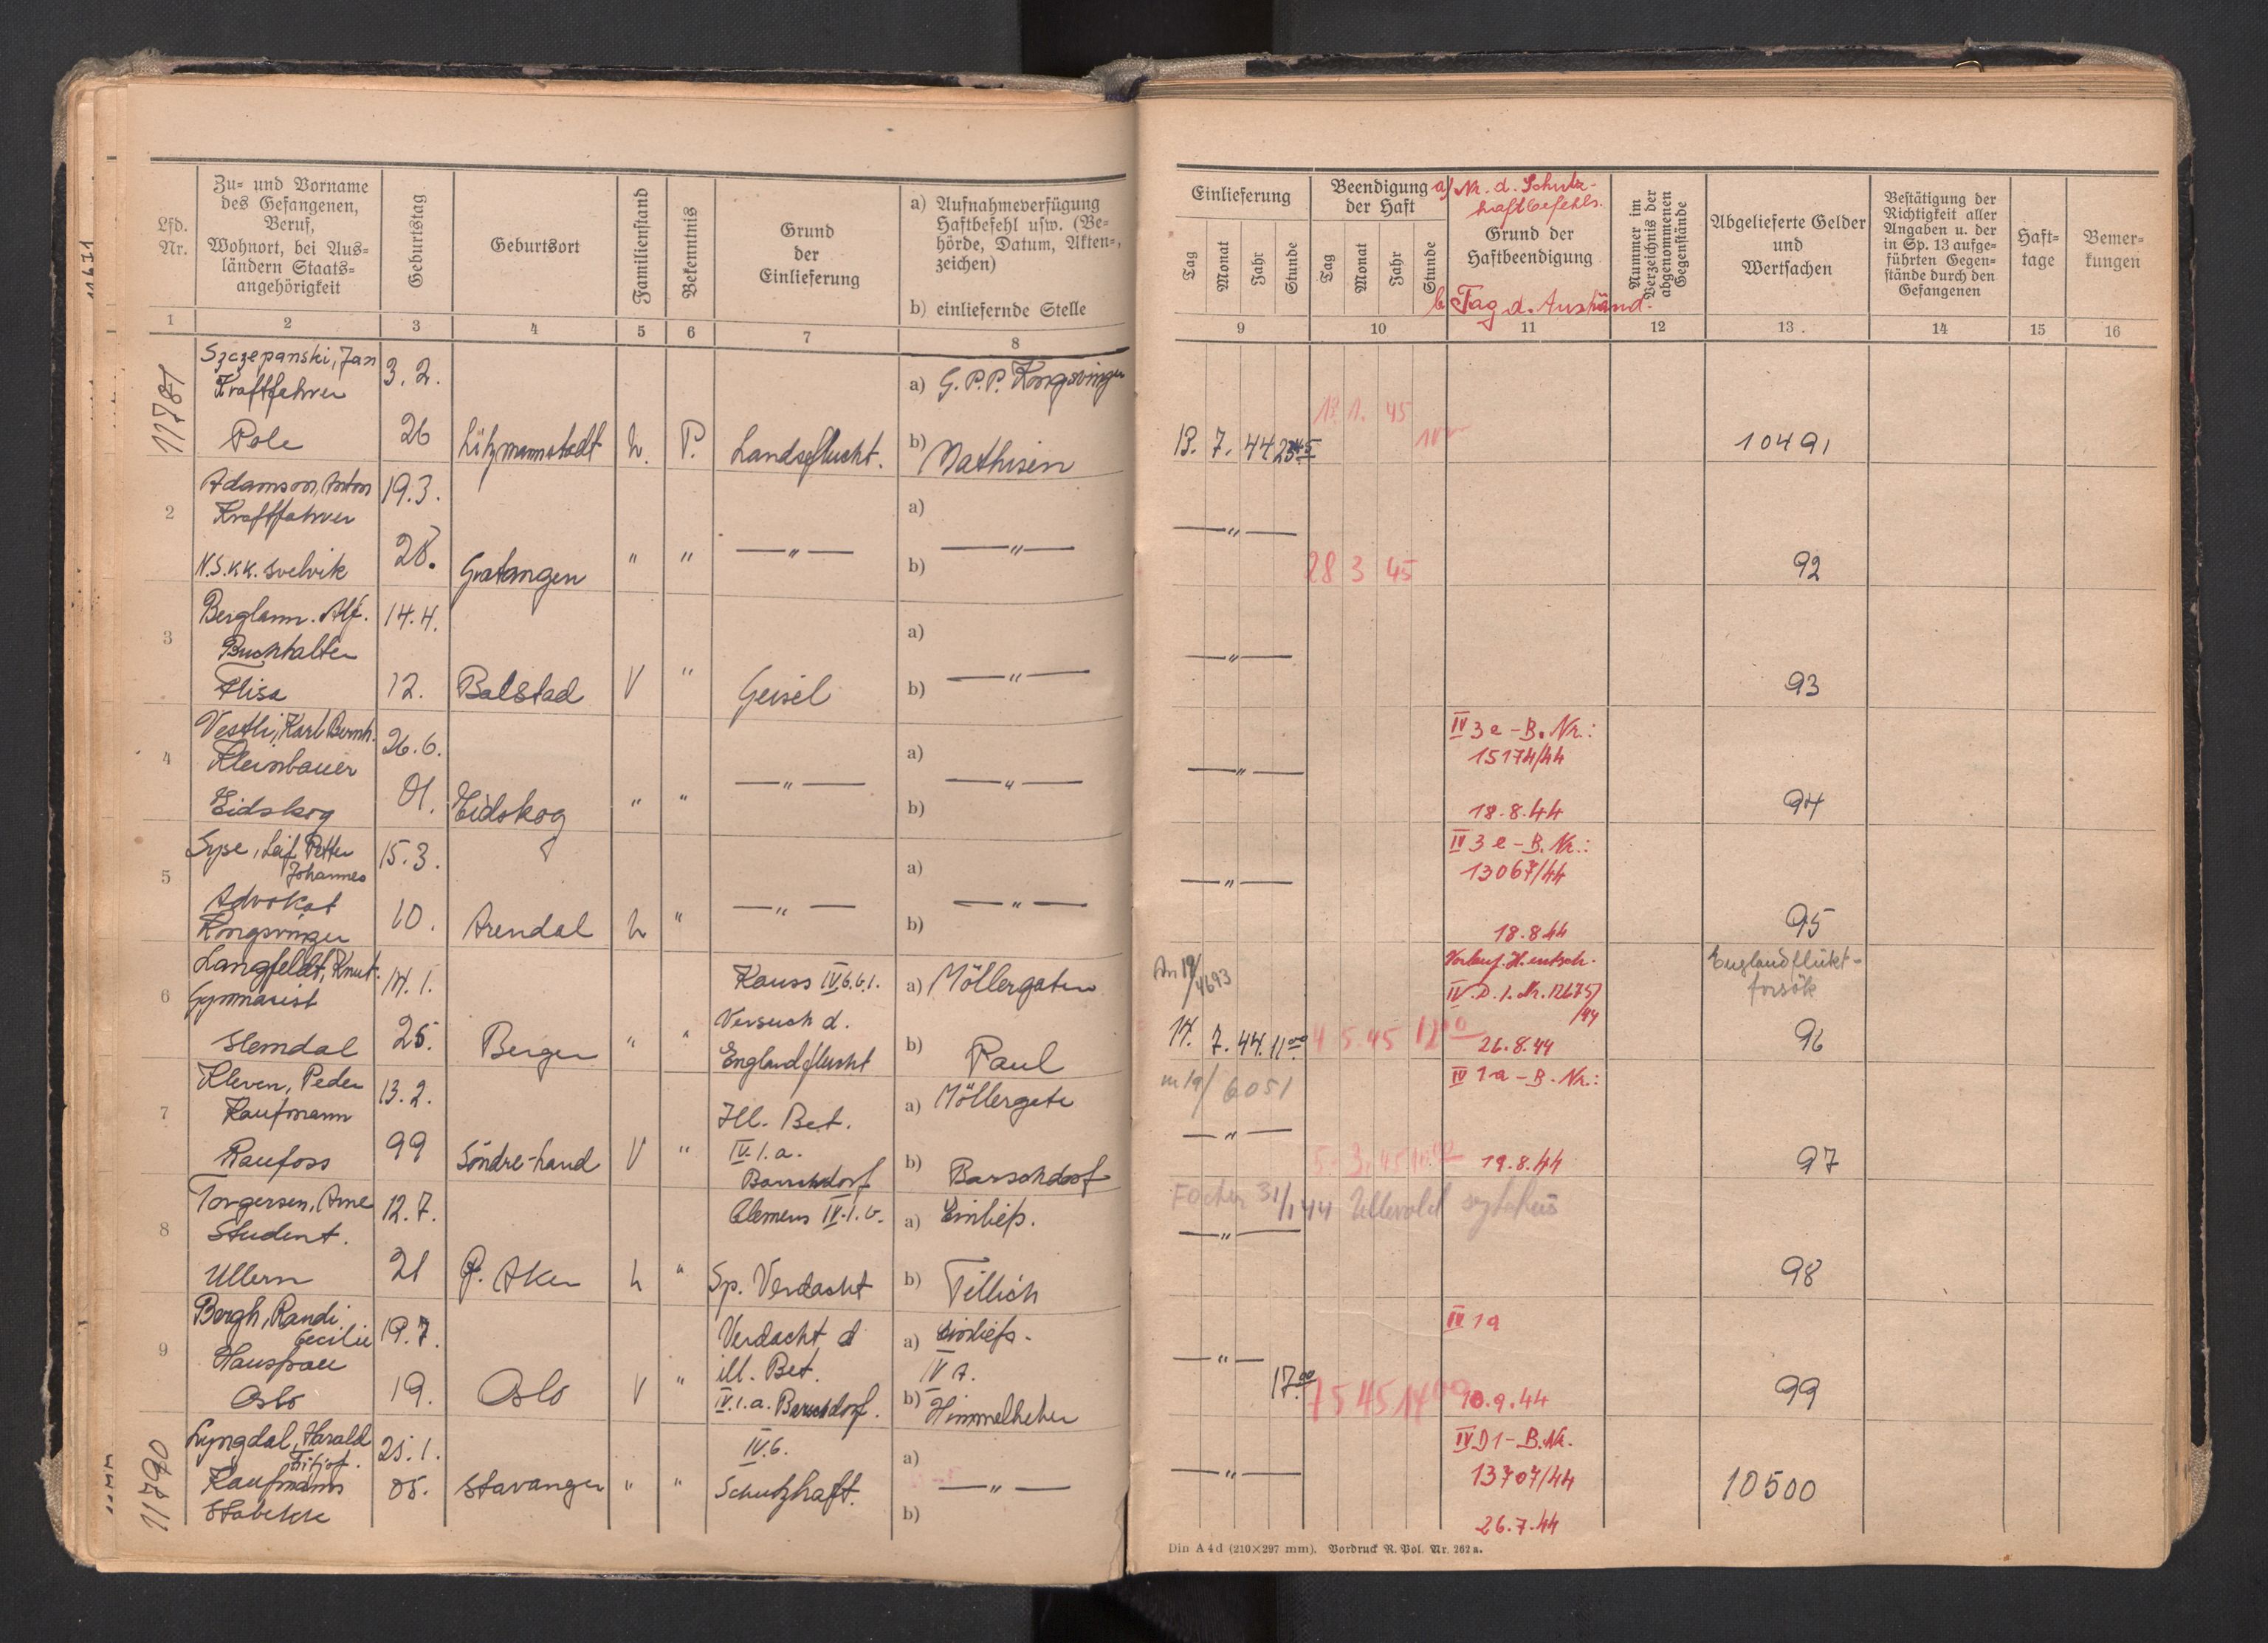 Lfd. Nr.
Zu- und Vorname des Gefangenen, Beruf, Wohnort, bei Ausländern Staatsangehörigkeit
Geburtstag
Geburtsort
Familienstand
Bekenntnis
Grund der Einlieferung
a) Aufnahmeverfügung Haftbefehl usw. (Behörde, Datum, Aktenzeichen)
b) einliefernde Stelle
1 2 3 4 5 6 7 8
11781
Szczepanski, Jan
Kraftfahrer
Pole
3. 2.
26
Litzmannstadt
L.
P.
Landesflucht.
a) G.P.P. Kongsvinger
b) Mathisen
2
Adamson, Anton
Kraftfahrer
N.S.K.K. Svelvik
19.3.
28.
Gratangen
" "
— " —
a)
— " —
b)
3
Berglann. Alf.
Buchhalter
Flisa
14.4.
12.
Balstad
V "
Geisel
a)
b) — " —
4
Vestli, Karl Bernh.
Kleinbauer
Eidskog
26.6.
01.
Eidskog
" "
— " —
a)
— " —
b)
5
Syse, Leif Petter
Johannes
Advokat
Kongsvinger
15.3.
10.
Arendal
L "
— " —
a)
— " —
b)
6
Langfeldt, Knut.
Gymnasist
Slemdal
14.1.
25.
Bergen
" "
Kauss IV.6.b.1.
Versuch d.
Englandflucht
a) Möllergaten
b) Paul
7
Kleven, Peder
Kaufmann
Raufoss
13.2.
99
Söndre-Land
V "
Ill. Bet.
IV.1.a.
Barschdorf
a) Möllergate
b) Barschdorf
8
Torgersen, Arne
Student.
Ullern
12.7.
21
Aker
L "
Clemens IV.1.b.
Sp. Verdacht
a) Einlief.
b) Tillich
9
Bergh, Randi
Cecilie
Hausfrau
Oslo
19.7.
19.
Oslo
V "
Verdacht d
ill. Bet.
IV.1.a. Barschdorf.
a) Einlief.
IV A.
b) Himmelheber
11790
Lyngdal, Harald
Fritjof.
Kaufmann
Stabekk
25.1.
05.
Stavanger
" "
IV.6.
Schutzhaft.
a)
— " —
b)
Einlieferung
Tag Monat Jahr Stunde
Beendigung der Haft
Tag Monat Jahr Stunde
a) Nr. d. Schutzhaftbefehls.
Grund der Haftbeendigung
b Tag d. Aushänd.
Nummer im Verzeichnis der abgenommenen Gegenstände
Abgelieferte Gelder und Wertsachen
Bestätigung der Richtigkeit aller Angaben u. der in Sp. 13 aufgeführten Gegenstände durch den Gefangenen
Hafttage
Bemerkungen
9 10 11 12 13. 14 15 16
13. 7. 44 2345
1. 45
10491
— " —
28 3 45
92
— " —
93
— " —
IV 3 e - B. Nr.:
15174/44
18.8.44
94
— " —
IV 3 e - B. Nr.:
13067/44
18.8.44
95
An 19/4693
14. 7. 44. 11 00
4 5.45 12 00
Vorlauf. H. entsch.
IV. D. 1. Nr. 12675/44
26.8.44
Englandflukt-
forsök
96
m 19/ 6051
— " —
5. 3. 45 10 00
IV 1a - B. Nr.:
19.8.44
97
31/1 44 Ullevold
— " —
98
— " —
17.00
7 5 45 14 00
IV 1a
10.9.44
99
— " —
IV D1 - B. Nr.
13707/44
26.7.44
10500
Din A 4d (210×297 mm). Vordruck R. Pol. Nr. 262 a.